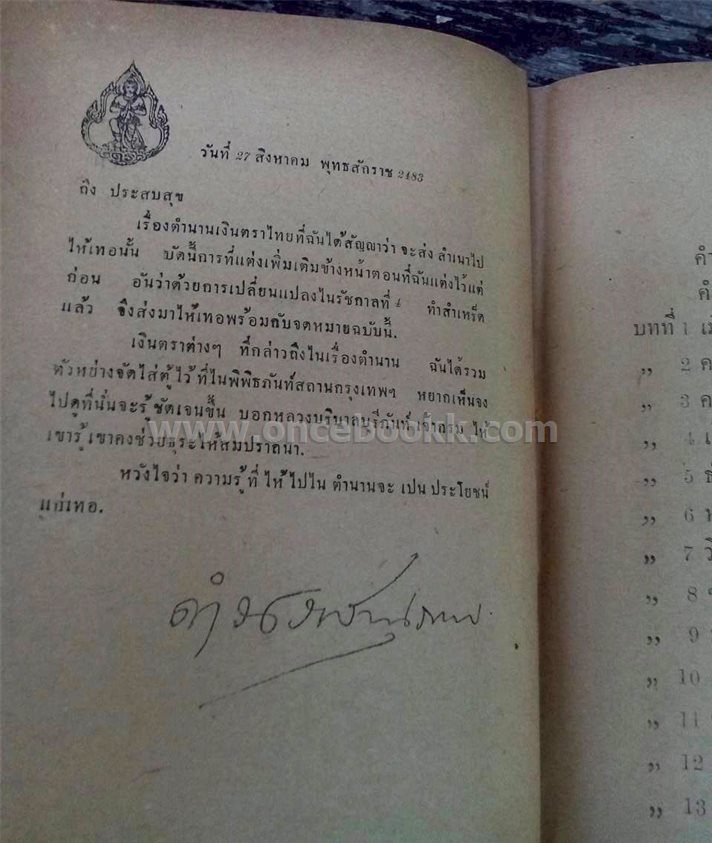 วันที่ 27 สิงหาคม พุทธสักราช 2483
ถึง ประสบสุข
เรื่องตำนานเงินตราไทยที่ฉันได้สัญญาว่า จะส่ง สำเนาไป
ให้เทอนั้น บัดนี้การที่แต่งเพิ่มเติมข้างหน้าตอนที่ฉันแต่งไว้แต่
ก่อน อันว่าด้วยการเปลี่ยนแปลงในรัชกาลที่ 4 ทำสำเหร็ด
แล้ว จึงส่งมาให้เทอพร้อมกับจดหมายฉบับนี้.
เงินตราต่างๆ ที่กล่าวถึงในเรื่องตำนาน ฉันได้รวม
ตัวหย่างจัดไส่ตู้ไว้ที่ในพิพิธภันท์สถานกรุงเทพฯ หยากเห็นจง
ไปดูที่นั่นจะรู้ชัดเจนขึ้น บอกหลวงบริบาลบุรีภันท์ เจ้ากรม ให้
เขารู้ เขาคงช่วยธุระให้สมปราถนา.
หวังใจว่า ความรู้ที่ ให้ไปใน ตำนานจะ เปน ประโยชน์
แก่เทอ.
ดำรงราชานุภาพ
www.oncebookk.com
คำ
คำ
บทที่ 1 เ
,, 2 ค
,, 3 ค
,, 4 เ
,, 5
,, 6 ห
,, 7 วิ
,, 8
,, 9
,, 10
,, 11
,, 12
,, 13